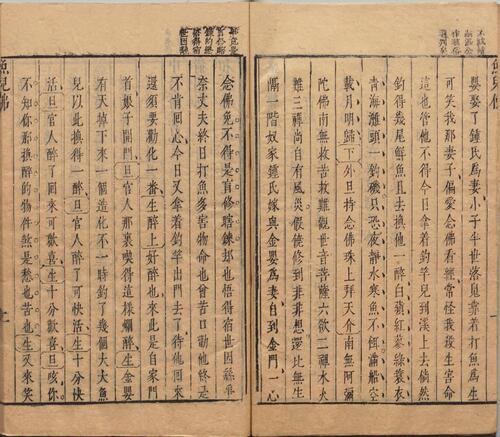 嬰娶了鍾氏爲妻小子半世落魄靠着打魚爲生
可笑我那妻子偏愛念佛看經常怪我殺生害命
這也管他不得今日拿着釣竿兒到溪上去倘然
釣得幾尾鮮魚且去換他一醉白蘋紅蓼綠蓑衣
青海灘頭一釣磯只恐夜靜水寒魚不餌滿船空
載月明歸下外旦持念佛珠上拜天介南無阿彌
陀佛南無救苦救難觀世音菩薩六欲二禪水火
難三禪尚自有風災假饒修到非非想愛比無生
隔一階奴家鍾氏嫁與金嬰爲妻自到金門一心
念佛免不得是盲修瞎鍊却也悟得宿世因緣爭
奈丈夫終日打魚多害物命也曾苦口勸他終是
不肯回心今日又拿着釣竿出門去了待他回來
還須要勸化一番生醉上好醉也來此是自家門
首娘子開門旦官人那裏喫得這樣爛醉生金嬰
有天掉下來一個造化不一時釣了幾個大大魚
兒以此換得一醉旦官人醉了可快活生十分快
活旦官人醉了回來可歡喜生十分歡喜旦咳你
不知你那換醉的物件煞是愁也苦也生又來笑
魚兒佛